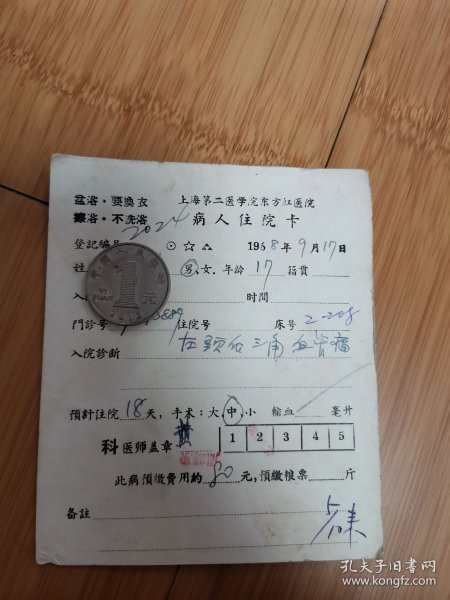 盆浴·要换衣 上海第二医学院东方红医院
擦浴·不洗浴 病人住院卡
登記編号 2024 ⊙☆△ 1968年9月17日
姓 男.女.年龄 17 籍貫
入 时間
門診号 住院号 床号 2-208
入院診断 左颈后三角血管瘤
預計住院 18 天,手术:大.中.小 輸血 毫升
科医师盖章 1 2 3 4 5
此病預缴費用約 80 元,預缴粮票 斤
备註
中国人民银行
1元
YI YUAN
孔夫子旧书网
www.kongfz.com